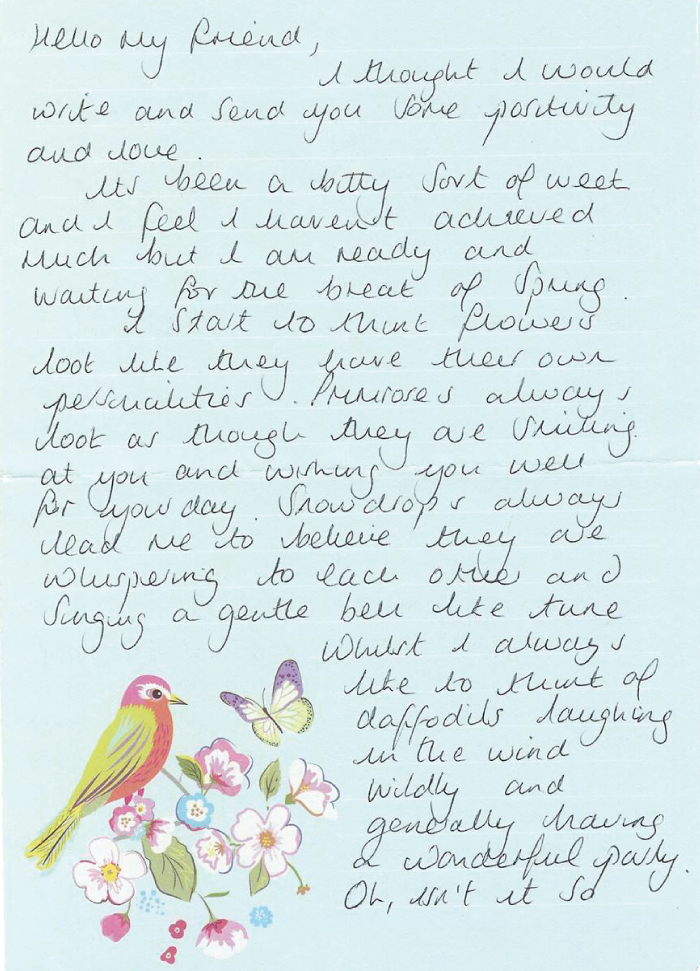 Hello My Friend,
I thought I would
write and send you some positivity
and love.
Its been a bitty sort of week
and I feel I haven't achieved
much but I am ready and
waiting for the break of Spring.
I start to think flowers
look like they have their own
personalities. Primroses always
look as though they are smiling
at you and wishing you well
for your day. Snowdrops always
lead me to believe they are
whispering to each other and
singing a gentle bell like tune
Whilst I always
like to think of
daffodils laughing
in the wind
wildly and
generally having
a wonderful party.
Oh, isn't it so